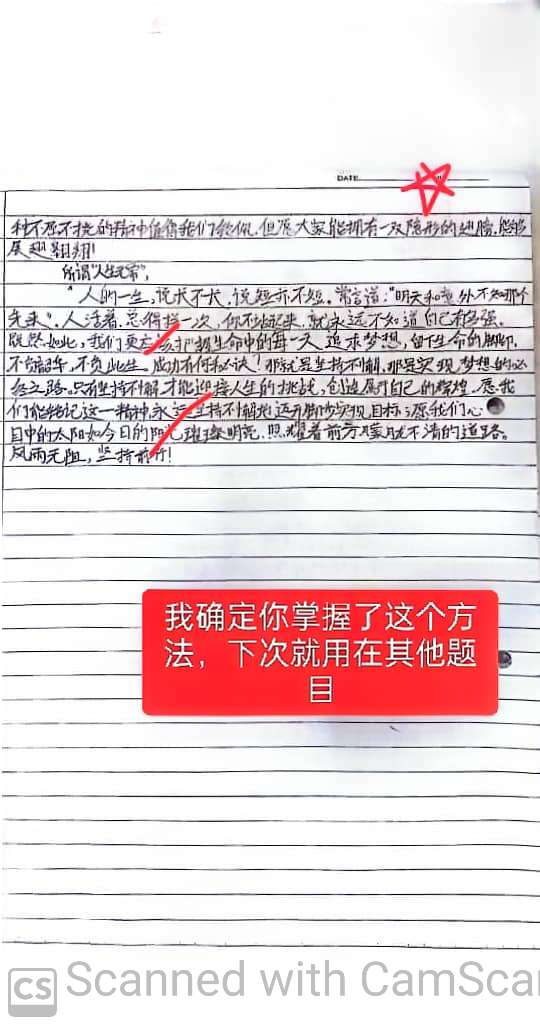 DATE
种不屈不挠的精神值得我们敬佩,但愿大家能拥有一双隐形的翅膀,能够
展翅翱翔!
所谓"人生无常",
"人的一生,说长不长,说短亦不短。常言道:"明天和意外不知那个
先来"。人活着,总得拦一次,你不站起来,就永远不知道自己有多强。
既然如此,我们更应该把握生命中的每一天,追求梦想,留下生命的脚印,
不负韶华,不负此生。成功有何秘诀?那就是坚持不懈,那是实现梦想的必
经之路。只有坚持不懈,才能迎接人生的挑战,创造属于自己的辉煌。愿我
们能铭记这一精神,永远坚持不懈地迈开脚步实现目标;愿我们心
目中的太阳如今日的阳光璀璨明亮,照耀着前方朦胧不清的道路。
风雨无阻,坚持前行!
我确定你掌握了这个方
法,下次就用在其他题
目
CS Scanned with CamScan